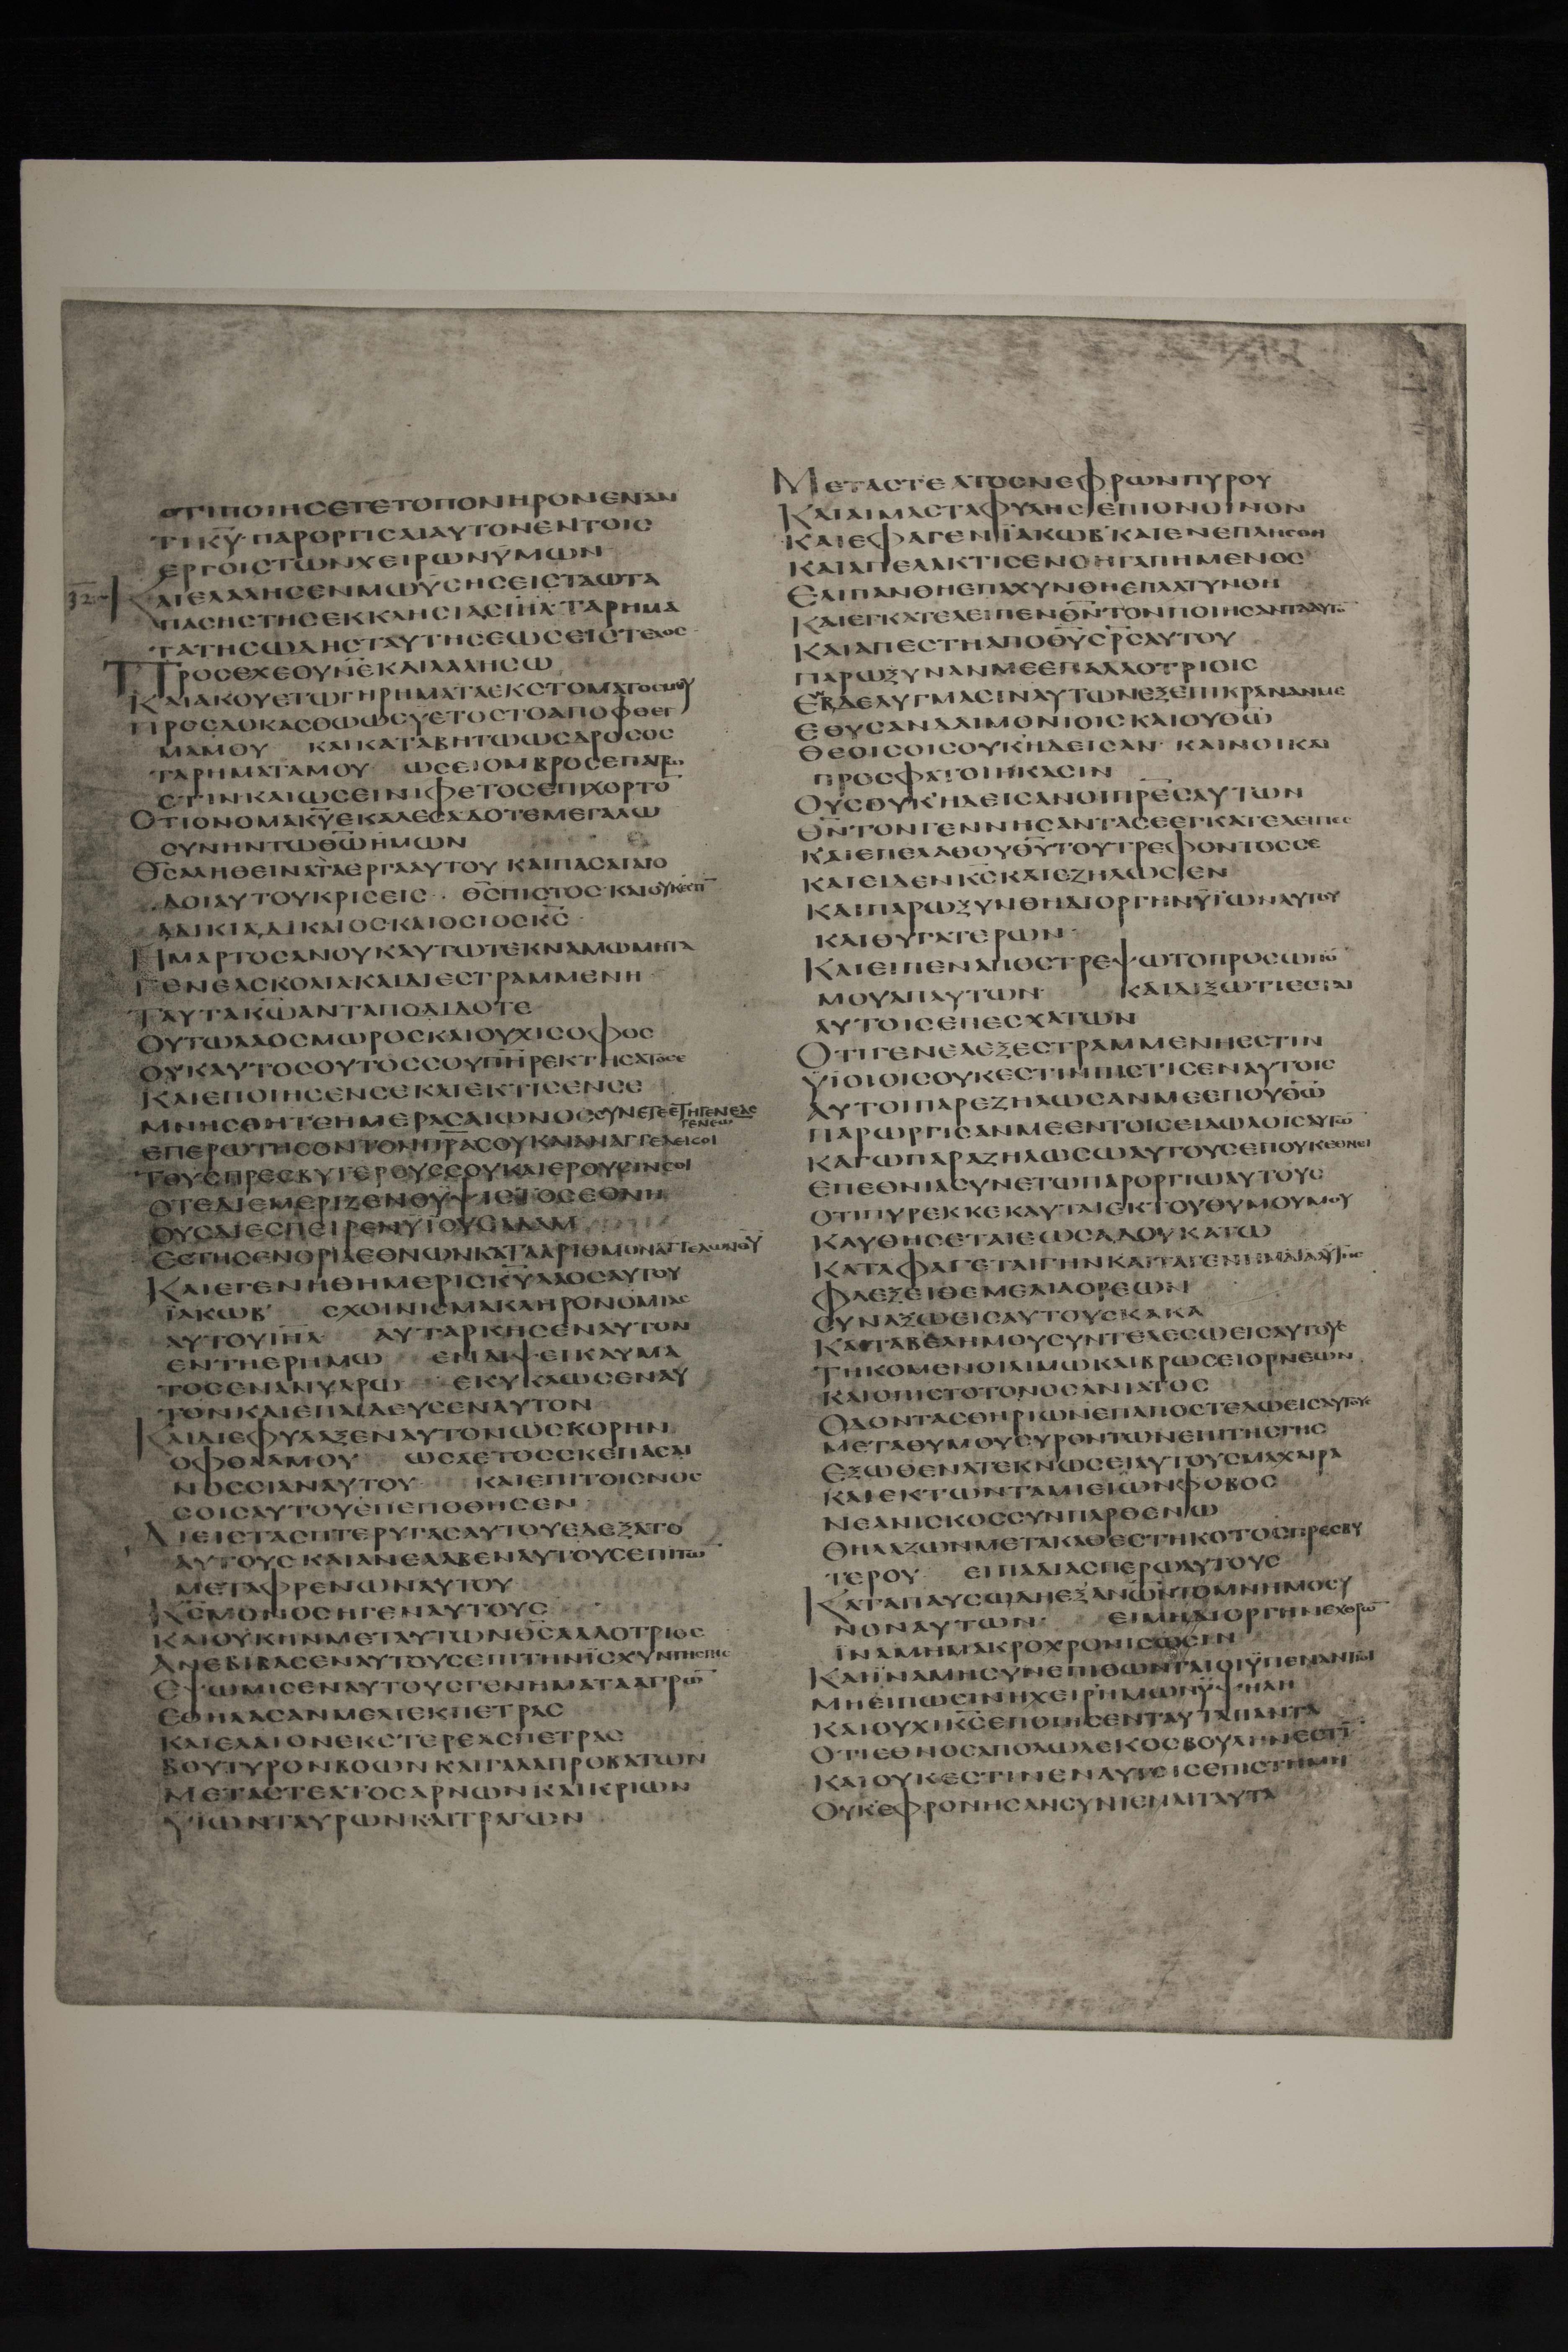 ΟΤΙΠΟΙΗCΕΤΕΤΟΠΟΝΗΡΟΝΕΝΑΝ
ΤΙΚ̅Υ̅·ΠΑΡΟΡΓΙCΑΙΑΥΤΟΝΕΝΤΟΙC
ΕΡΓΟΙCΤΩΝΧΕΙΡΩΝΥΜΩΝ
32 ΚΑΙΕΛΑΛΗCΕΝΜΩΥCΗCΕΙCΤΑΩΤΑ
ΠΑCΗCΤΗCΕΚΚΛΗCΙΑCΙ̅Η̅Λ̅·ΤΑΡΗΜΑ
ΤΑΤΗCΩΔΗCΤΑΥΤΗCΕΩCΕΙCΤΕΛΟC
ΠΡΟCΕΧΕΟΥΝΕΚΑΙΛΑΛΗCΩ
ΚΑΙΑΚΟΥΕΤΩΓΗΡΗΜΑΤΑΕΚCΤΟΜΑΤΟCΜΟΥ
ΠΡΟCΔΟΚΑCΘΩΩCΥΕΤΟCΤΟΑΠΟΦΘΕΓ
ΜΑΜΟΥ ΚΑΙΚΑΤΑΒΗΤΩΩCΔΡΟCΟC
ΤΑΡΗΜΑΤΑΜΟΥ ΩCΕΙΟΜΒΡΟCΕΠΑΓΡΩ
CΤΙΝΚΑΙΩCΕΙΝΙΦΕΤΟCΕΠΙΧΟΡΤΟ̅
ΟΤΙΟΝΟΜΑΚ̅Υ̅ΕΚΑΛΕCΑΔΟΤΕΜΕΓΑΛΩ
CΥΝΗΝΤΩΘ̅Ω̅ΗΜΩΝ
Θ̅C̅ΑΛΗΘΕΙΝΑΤΑΕΡΓΑΑΥΤΟΥ ΚΑΙΠΑCΑΙΑΙΟ
ΔΟΙΑΥΤΟΥΚΡΙCΕΙC· Θ̅C̅ΠΙCΤΟCΚΑΙΟΥΚΕCΤΙ̅
ΑΔΙΚΙΑ,ΔΙΚΑΙΟCΚΑΙΟCΙΟCΚ̅C̅·
ΗΜΑΡΤΟCΑΝΟΥΚΑΥΤΩΤΕΚΝΑΜΩΜΗΤΑ
ΓΕΝΕΑCΚΟΛΙΑΚΑΙΔΙΕCΤΡΑΜΜΕΝΗ
ΤΑΥΤΑΚ̅Ω̅ΑΝΤΑΠΟΔΙΔΟΤΕ
ΟΥΤΩΛΑΟCΜΩΡΟCΚΑΙΟΥΧΙCΟΦΟC
ΟΥΚΑΥΤΟCΟΥΤΟCCΟΥΠ̅Η̅Ρ̅ΕΚΤΗCΑΤΟCΕ
ΚΑΙΕΠΟΙΗCΕΝCΕΚΑΙΕΚΤΙCΕΝCΕ
ΜΝΗCΘΗΤΕΗΜΕΡΑCΑΙΩΝΟCCΥΝΕΤΕΕΤΗΓΕΝΕΑC
ΓΕΝΕΩ̅
ΕΠΕΡΩΤΗCΟΝΤΟΝΠ̅Ρ̅Α̅CΟΥΚΑΙΑΝΑΓΓΕΛΕΙCΟΙ
ΤΟΥCΠΡΕCΒΥΤΕΡΟΥCCΟΥΚΑΙΕΡΟΥCΙΝCΟΙ
ΟΤΕΔΙΕΜΕΡΙΖΕΝΟΥΨΙCΤΟCΕΘΝΗ
ΟΥCΔΙΕCΠΕΙΡΕΝΥΙΟΥCΑΔΑΜ
ΕCΤΗCΕΝΟΡΙΑΕΘΝΩΝΚΑΤΑΑΡΙΘΜΟΝΑΓΓΕΛΩΝΘ̅Υ̅
ΚΑΙΕΓΕΝΗΘΗΜΕΡΙCΚ̅Υ̅ΛΑΟCΑΥΤΟΥ
ΪΑΚΩΒ’ CΧΟΙΝΙCΜΑΚΛΗΡΟΝΟΜΙΑC
ΑΥΤΟΥΙ̅Η̅Λ̅ ΑΥΤΑΡΚΗCΕΝΑΥΤΟΝ
ΕΝΤΗΕΡΗΜΩ ΕΝΔΙΨΕΙΚΑΥΜΑ
ΤΟCΕΝΑΝΥΔΡΩ ΕΚΥΚΛΩCΕΝΑΥ
ΤΟΝΚΑΙΕΠΑΙΔΕΥCΕΝΑΥΤΟΝ
ΚΑΙΔΙΕΦΥΛΑΞΕΝΑΥΤΟΝΩCΚΟΡΗΝ
ΟΦΘΑΛΜΟΥ ΩCΑΕΤΟCCΚΕΠΑCΑΙ
ΝΟCCΙΑΝΑΥΤΟΥ ΚΑΙΕΠΙΤΟΙCΝΟC
CΟΙCΑΥΤΟΥΕΠΕΠΟΘΗCΕΝ
ΔΙΕΙCΤΑCΠΤΕΡΥΓΑCΑΥΤΟΥΕΔΕΞΑΤΟ
ΑΥΤΟΥCΚΑΙΑΝΕΛΑΒΕΝΑΥΤΟΥCΕΠΙΤΩ̅
ΜΕΤΑΦΡΕΝΩΝΑΥΤΟΥ
Κ̅C̅ΜΟΝΟCΗΓΕΝΑΥΤΟΥC
ΚΑΙΟΥΚΗΝΜΕΤΑΥΤΩΝΘ̅C̅ΑΛΛΟΤΡΙΟC
ΑΝΕΒΙΒΑCΕΝΑΥΤΟΥCΕΠΙΤΗΝΪCΧΥΝΤΗCΓΗC
ΕΨΩΜΙCΕΝΑΥΤΟΥCΓΕΝΗΜΑΤΑΑΓΡΩ̅
ΕΘΗΛΑCΑΝΜΕΛΙΕΚΠΕΤΡΑC
ΚΑΙΕΛΑΙΟΝΕΚCΤΕΡΕΑCΠΕΤΡΑC
ΒΟΥΤΥΡΟΝΒΟΩΝΚΑΙΓΑΛΑΠΡΟΒΑΤΩΝ
ΜΕΤΑCΤΕΑΤΟCΑΡΝΩΝΚΑΙΚΡΙΩΝ
ΫΙΩΝΤΑΥΡΩΝΚΑΙΤΡΑΓΩΝ
ΜΕΤΑCΤΕΑΤΟCΝΕΦΡΩΝΠΥΡΟΥ
ΚΑΙΑΙΜΑCΤΑΦΥΛΗCΕΠΙΟΝΟΙΝΟΝ
ΚΑΙΕΦΑΓΕΝΪΑΚΩΒ’ΚΑΙΕΝΕΠΛΗCΘΗ
ΚΑΙΑΠΕΛΑΚΤΙCΕΝΟΗΓΑΠΗΜΕΝΟC
ΕΛΙΠΑΝΘΗΕΠΑΧΥΝΘΗΕΠΛΑΤΥΝΘΗ
ΚΑΙΕΓΚΑΤΕΛΕΙΠΕΝΘ̅Ν̅ΤΟΝΠΟΙΗCΑΝΤΑΑΥΤΟ̅
ΚΑΙΑΠΕCΤΗΑΠΟΘ̅Υ̅C̅Ρ̅C̅ΑΥΤΟΥ
ΠΑΡΩΞΥΝΑΝΜΕΕΠΑΛΛΟΤΡΙΟΙC
ΕΝΒΔΕΛΥΓΜΑCΙΝΑΥΤΩΝΕΞΕΠΙΚΡΑΝΑΝΜΕ
ΕΘΥCΑΝΔΑΙΜΟΝΙΟΙCΚΑΙΟΥΘ̅Ω̅
ΘΕΟΙCΟΙCΟΥΚΗΔΕΙCΑΝ· ΚΑΙΝΟΙΚΑΙ
ΠΡΟCΦΑΤΟΙΗΚΑCΙΝ
ΟΥCΟΥΚΗΔΕΙCΑΝΟΙΠ̅Ρ̅Ε̅C̅ΑΥΤΩΝ
Θ̅Ν̅ΤΟΝΓΕΝΝΗCΑΝΤΑCΕΕΓΚΑΤΕΛΕΙΠΕC
ΚΑΙΕΠΕΛΑΘΟΥΘ̅Υ̅ΤΟΥΤΡΕΦΟΝΤΟCCΕ
ΚΑΙΕΙΔΕΝΚ̅C̅ΚΑΙΕΖΗΛΩCΕΝ
ΚΑΙΠΑΡΩΞΥΝΘΗΔΙΟΡΓΗΝΫΙΩΝΑΥΤΟΥ
ΚΑΙΘΥΓΑΤΕΡΩΝ·
ΚΑΙΕΙΠΕΝΑΠΟCΤΡΕΨΩΤΟΠΡΟCΩΠΟ̅
ΜΟΥΑΠΑΥΤΩΝ ΚΑΙΔΙΞΩΤΙΕCΤΑΙ
ΑΥΤΟΙCΕΠΕCΧΑΤΩΝ
ΟΤΙΓΕΝΕΑΕΞΕCΤΡΑΜΜΕΝΗΕCΤΙΝ
ΫΙΟΙΟΙCΟΥΚΕCΤΙΝΠΙCΤΙCΕΝΑΥΤΟΙC
ΑΥΤΟΙΠΑΡΕΖΗΛΩCΑΝΜΕΕΠΟΥΘ̅Ω̅
ΠΑΡΩΡΓΙCΑΝΜΕΕΝΤΟΙCΕΙΔΩΛΟΙCΑΥΤΩ̅
ΚΑΓΩΠΑΡΑΖΗΛΩCΩΑΥΤΟΥCΕΠΟΥΚΕΘΝΕΙ
ΕΠΕΘΝΙΑCΥΝΕΤΩΠΑΡΟΡΓΙΩΑΥΤΟΥC
ΟΤΙΠΥΡΕΚΚΕΚΑΥΤΑΙΕΚΤΟΥΘΥΜΟΥΜΟΥ
ΚΑΥΘΗCΕΤΑΙΕΩCΑΔΟΥΚΑΤΩ
ΚΑΤΑΦΑΓΕΤΑΙΓΗΝΚΑΙΤΑΓΕΝΗΜΑΤΑΑΥΤΗC
ΦΛΕΞΕΙΘΕΜΕΛΙΑΟΡΕΩΝ
CΥΝΑΞΩΕΙCΑΥΤΟΥCΚΑΚΑ
ΚΑΙΤΑΒΕΛΗΜΟΥCΥΝΤΕΛΕCΩΕΙCΑΥΤΟΥC
ΤΗΚΟΜΕΝΟΙΛΙΜΩΚΑΙΒΡΩCΕΙΟΡΝΕΩΝ
ΚΑΙΟΠΙCΤΟΤΟΝΟCΑΝΙΑΤΟC
ΟΔΟΝΤΑCΘΗΡΙΩΝΕΠΑΠΟCΤΕΛΩΕΙCΑΥΤΟΥC
ΜΕΤΑΘΥΜΟΥCΥΡΟΝΤΩΝΕΠΙΤΗCΓΗC
ΕΞΩΘΕΝΑΤΕΚΝΩCΕΙΑΥΤΟΥCΜΑΧΑΙΡΑ
ΚΑΙΕΚΤΩΝΤΑΜΙΕΙΩΝΦΟΒΟC
ΝΕΑΝΙCΚΟCCΥΝΠΑΡΘΕΝΩ
ΘΗΛΑΖΩΝΜΕΤΑΚΑΘΕCΤΗΚΟΤΟCΠΡΕCΒΥ
ΤΕΡΟΥ ΕΙΠΑΔΙΑCΠΕΡΩΑΥΤΟΥC
ΚΑΤΑΠΑΥCΩΔΗΕΞΑΝ̅Ω̅Ν̅ΤΟΜΝΗΜΟCΥ
ΝΟΝΑΥΤΩΝ· ΕΙΜΗΔΙΟΡΓΗΝΕΧΘΡΩ̅
ΪΝΑΜΗΜΑΚΡΟΧΡΟΝΙCΩCΙΝ
ΚΑΙΪΝΑΜΗCΥΝΕΠΙΘΩΝΤΑΙΟΙΫΠΕΝΑΝΤΙΟΙ
ΜΗΕΙΠΩCΙΝΗΧΕΙΡΗΜΩΝΫΨΗΛΗ
ΚΑΙΟΥΧΙΚ̅C̅ΕΠΟΙΗCΕΝΤΑΥΤΑΠΑΝΤΑ
ΟΤΙΕΘΝΟCΑΠΟΛΩΛΕΚΟCΒΟΥΛΗΝΕCΤΙ̅
ΚΑΙΟΥΚΕCΤΙΝΕΝΑΥΤΟΙCΕΠΙCΤΗΜΗ
ΟΥΚΕΦΡΟΝΗCΑΝCΥΝΙΕΝΑΙΤΑΥΤΑ